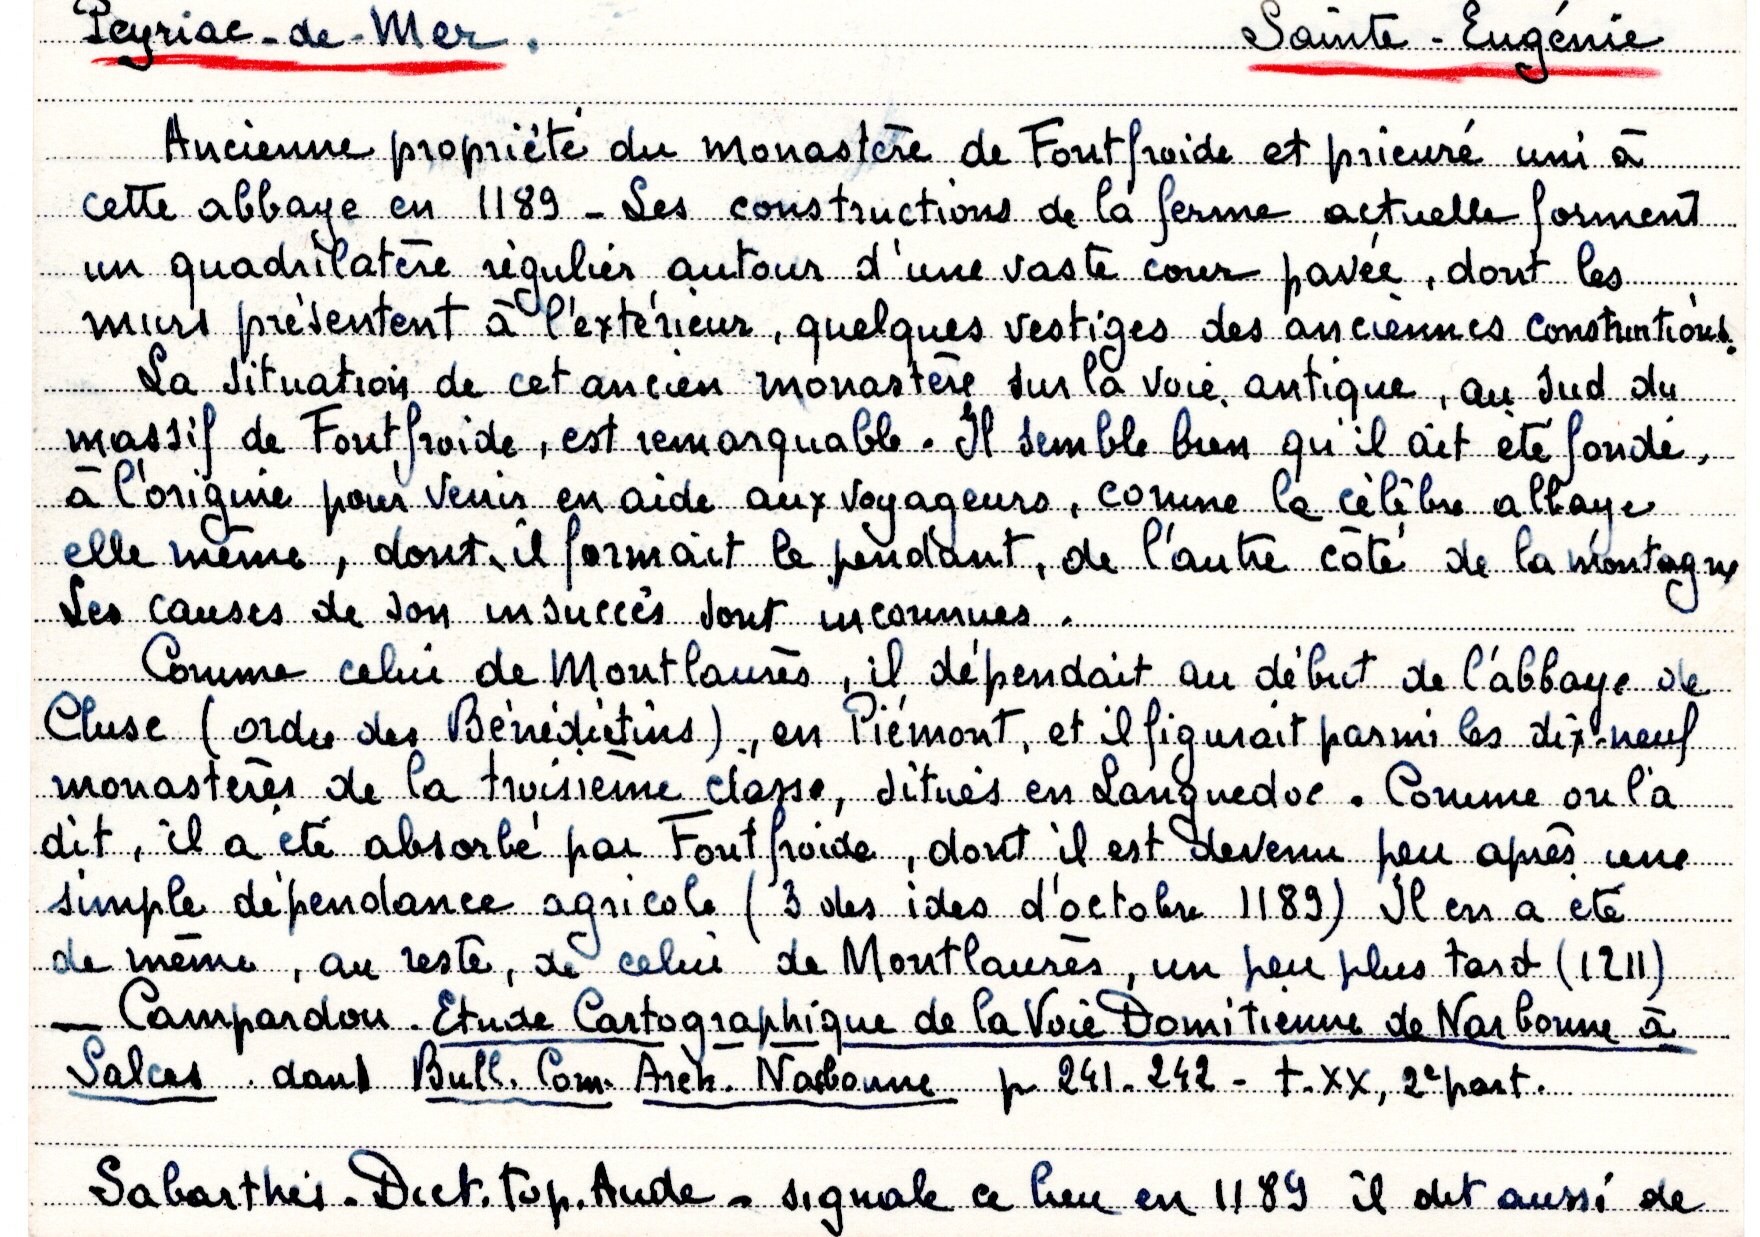 Peyriac-de-Mer. Sainte-Eugénie
Ancienne propriété du monastère de Fontfroide et prieuré uni à
cette abbaye en 1189 - Les constructions de la ferme actuelle forment
un quadrilatère régulier autour d'une vaste cour pavée, dont les
murs présentent à l'extérieur, quelques vestiges des anciennes constructions.
La situation de cet ancien monastère sur la voie antique, au sud du
massif de Fontfroide, est remarquable. Il semble bien qu'il ait été fondé,
à l'origine pour venir en aide aux voyageurs, comme la célèbre abbaye
elle même, dont il formait le pendant, de l'autre côté de la montagne
Les causes de son insuccès sont inconnues.
Comme celui de Montlaurès, il dépendait au début de l'abbaye de
Cluse (ordre des Bénédictins), en Piémont, et il figurait parmi les dix-neuf
monastères de la troisième classe, situés en Languedoc. Comme on l'a
dit, il a été absorbé par Fontfroide, dont il est devenu peu après une
simple dépendance agricole (3 des ides d'octobre 1189) Il en a été
de même, au reste, de celui de Montlaurès, un peu plus tard (1211)
— Campardou. Etude Cartographique de la Voie Domitienne de Narbonne à
Salces. dans Bull. Com. Arch. Narbonne p 241-242 - t. XX, 2e part.
Sabarthès - Dict. Top. Aude - signale ce lieu en 1189 il dit aussi de